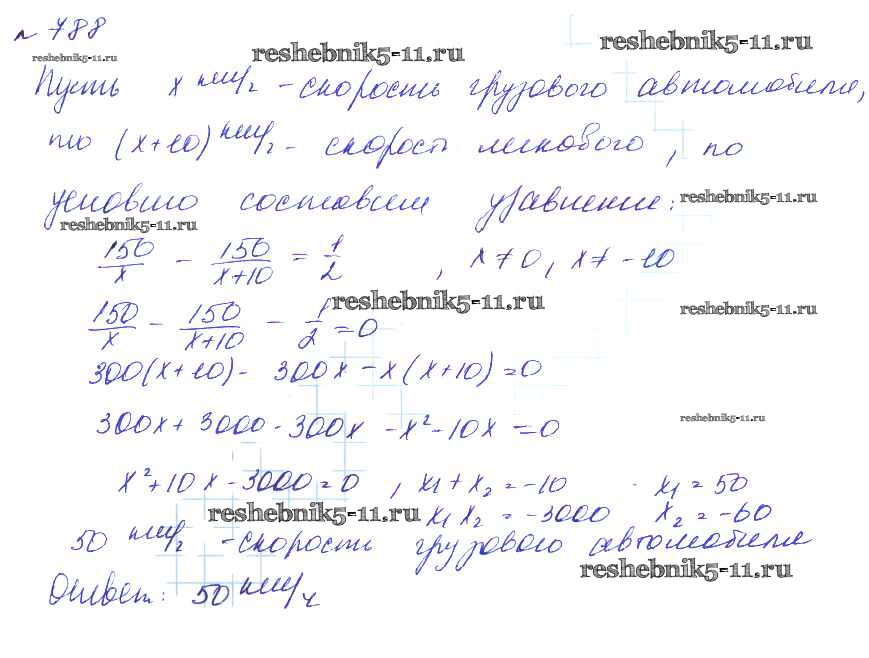 № 788
reshebnik5-11.ru reshebnik5-11.ru reshebnik5-11.ru
Пусть x км/ч - скорость грузового автомобиля,
то (x+10) км/ч - скорость легкового, по
условию составим уравнение: reshebnik5-11.ru
reshebnik5-11.ru
150/x - 150/(x+10) = 1/2 , x≠0, x≠-10
reshebnik5-11.ru reshebnik5-11.ru
150/x - 150/(x+10) - 1/2 = 0
300(x+10) - 300x - x(x+10) = 0
reshebnik5-11.ru
300x + 3000 - 300x - x² - 10x = 0
x² + 10x - 3000 = 0 , x₁ + x₂ = -10 x₁ = 50
reshebnik5-11.ru x₁x₂ = -3000 x₂ = -60
50 км/ч - скорость грузового автомобиля
reshebnik5-11.ru
Ответ: 50 км/ч